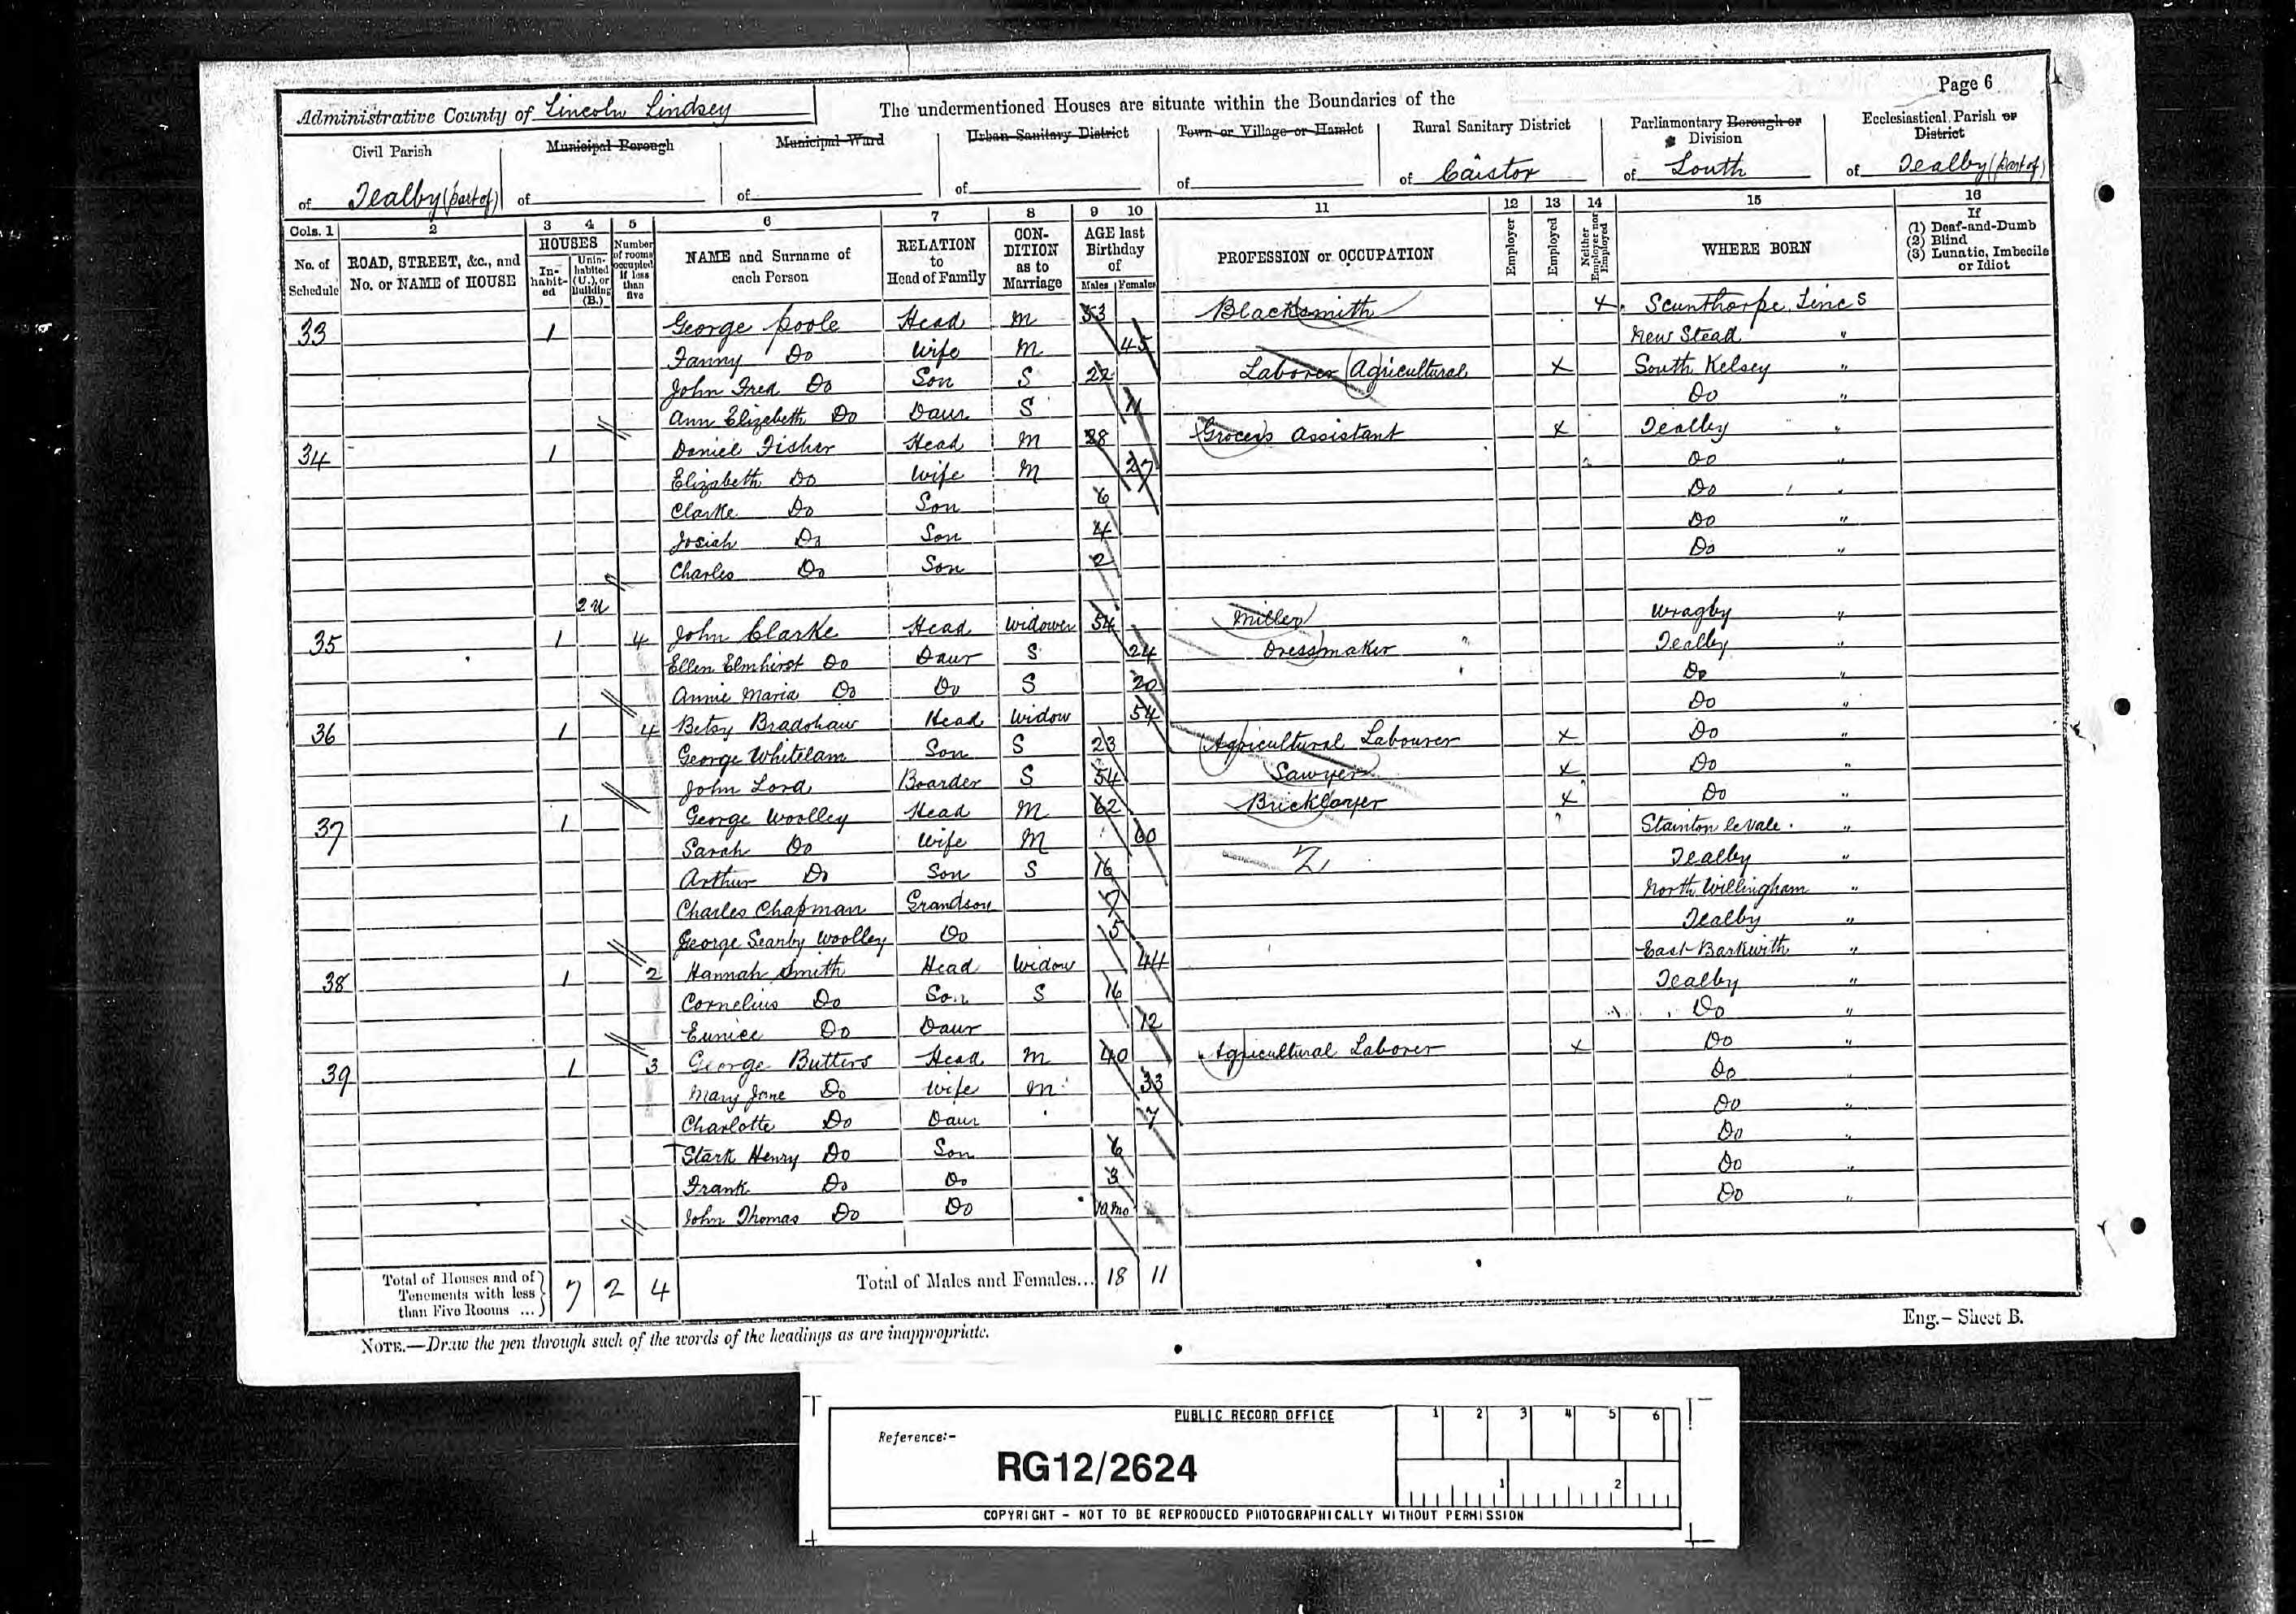 Page 6
Administrative County of Lincoln Lindsey The undermentioned Houses are situate within the Boundaries of the
Civil Parish of Tealby (part of) Municipal Borough of Municipal Ward of Urban Sanitary District of Town or Village or Hamlet of Rural Sanitary District of Caistor Parliamentary Borough or Division of Louth Ecclesiastical Parish or District of Tealby (part of)
Cols. 1 2 3 4 5 6 7 8 9 10 11 12 13 14 15 16
No. of Schedule ROAD, STREET, &c., and No. or NAME of HOUSE HOUSES Inhabit-ed Unin-habited (U.), or Building (B.) Number of rooms occupied if less than five NAME and Surname of each Person RELATION to Head of Family CON-DITION as to Marriage AGE last Birthday of Males Females PROFESSION or OCCUPATION Employer Employed Neither Employer nor Employed WHERE BORN If (1) Deaf-and-Dumb (2) Blind (3) Lunatic, Imbecile or Idiot
33 1 George Poole Head M 53 Blacksmith X Scunthorpe Lincs
Fanny Do Wife M 45 New Stead "
John Fred Do Son S 22 Laborer Agricultural X South Kelsey "
Ann Elizabeth Do Daur S 11 Do "
34 1 Daniel Fisher Head M 28 Grocers Assistant X Tealby "
Elizabeth Do Wife M 27 Do "
Clarke Do Son 6 Do "
Josiah Do Son 4 Do "
Charles Do Son 2 Do "
2 U
35 1 4 John Clarke Head Widower 54 Miller Wragby "
Ellen Elmhirst Do Daur S 24 Dressmaker Tealby "
Annie Maria Do Do S 20 Do "
36 1 4 Betsy Bradshaw Head Widow 54 Do "
George Whitelam Son S 23 Agricultural Labourer X Do "
John Lord Boarder S 54 Sawyer X Do "
37 1 George Woolley Head M 62 Bricklayer X Do "
Sarah Do Wife M 60 Stainton le Vale "
Arthur Do Son S 16 Tealby "
Charles Chapman Grandson 7 North Willingham "
George Scanby Woolley Do 5 Tealby "
38 1 2 Hannah Smith Head Widow 44 East Barkwith "
Cornelius Do Son S 16 Tealby "
Eunice Do Daur 12 Do "
39 1 3 George Butters Head M 40 Agricultural Laborer X Do "
Mary Jane Do Wife M 33 Do "
Charlotte Do Daur 7 Do "
Stark Henry Do Son 6 Do "
Frank Do Do 3 Do "
John Thomas Do Do 10 mo Do "
Total of Houses and of Tenements with less than Five Rooms ... 7 2 4 Total of Males and Females... 18 11
NOTE.—Draw the pen through such of the words of the headings as are inappropriate.
Eng.—Sheet B.
PUBLIC RECORD OFFICE
Reference:-
RG12/2624
1 2 3 4 5 6
1 2
COPYRIGHT - NOT TO BE REPRODUCED PHOTOGRAPHICALLY WITHOUT PERMISSION